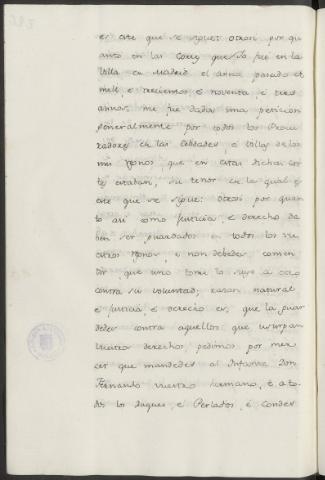 es este que se sigue: otrosi por qu
anto en las Cortes que Yo fui en la
Villa de Madrid el anno pasado de
mill, e trecientos e noventa, e tres
annos, me fue dada una peticion
generalmente por todos los Procu
radores de las Cibdades, e Villas de los
mis Regnos, que en estas dichas Cor
tes estaban, su tenor de la qual es
este que se sigue: Otrosi por quan
to asi como Justicia, e derecho de
ben ser guardados en todos los vu
estros Regnos, e non debedes consen
tir, que uno tome lo suyo a otro
contra su voluntad; razon natural
e justicia, e derecho es, que la guar
dedes contra aquellos, que usurpan
vuestro derecho, pedimos por mer
cet que mandedes al Infante Don
Fernando vuestro hermano, e a to
dos los Duques, e Perlados, e Condes